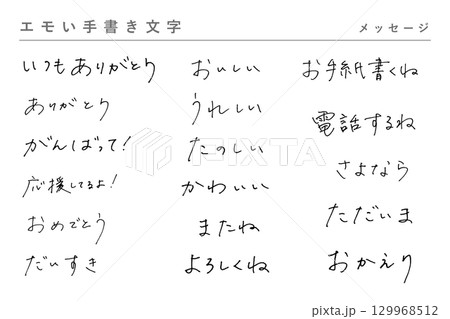 エモい手書き文字
メッセージ
いつもありがとう
ありがとう
がんばって!
応援してるよ!
おめでとう
だいすき
おいしい
うれしい
たのしい
かわいい
またね
よろしくね
お手紙書くね
電話するね
さよなら
ただいま
おかえり
PIXTA
pixta.jp - 129968512